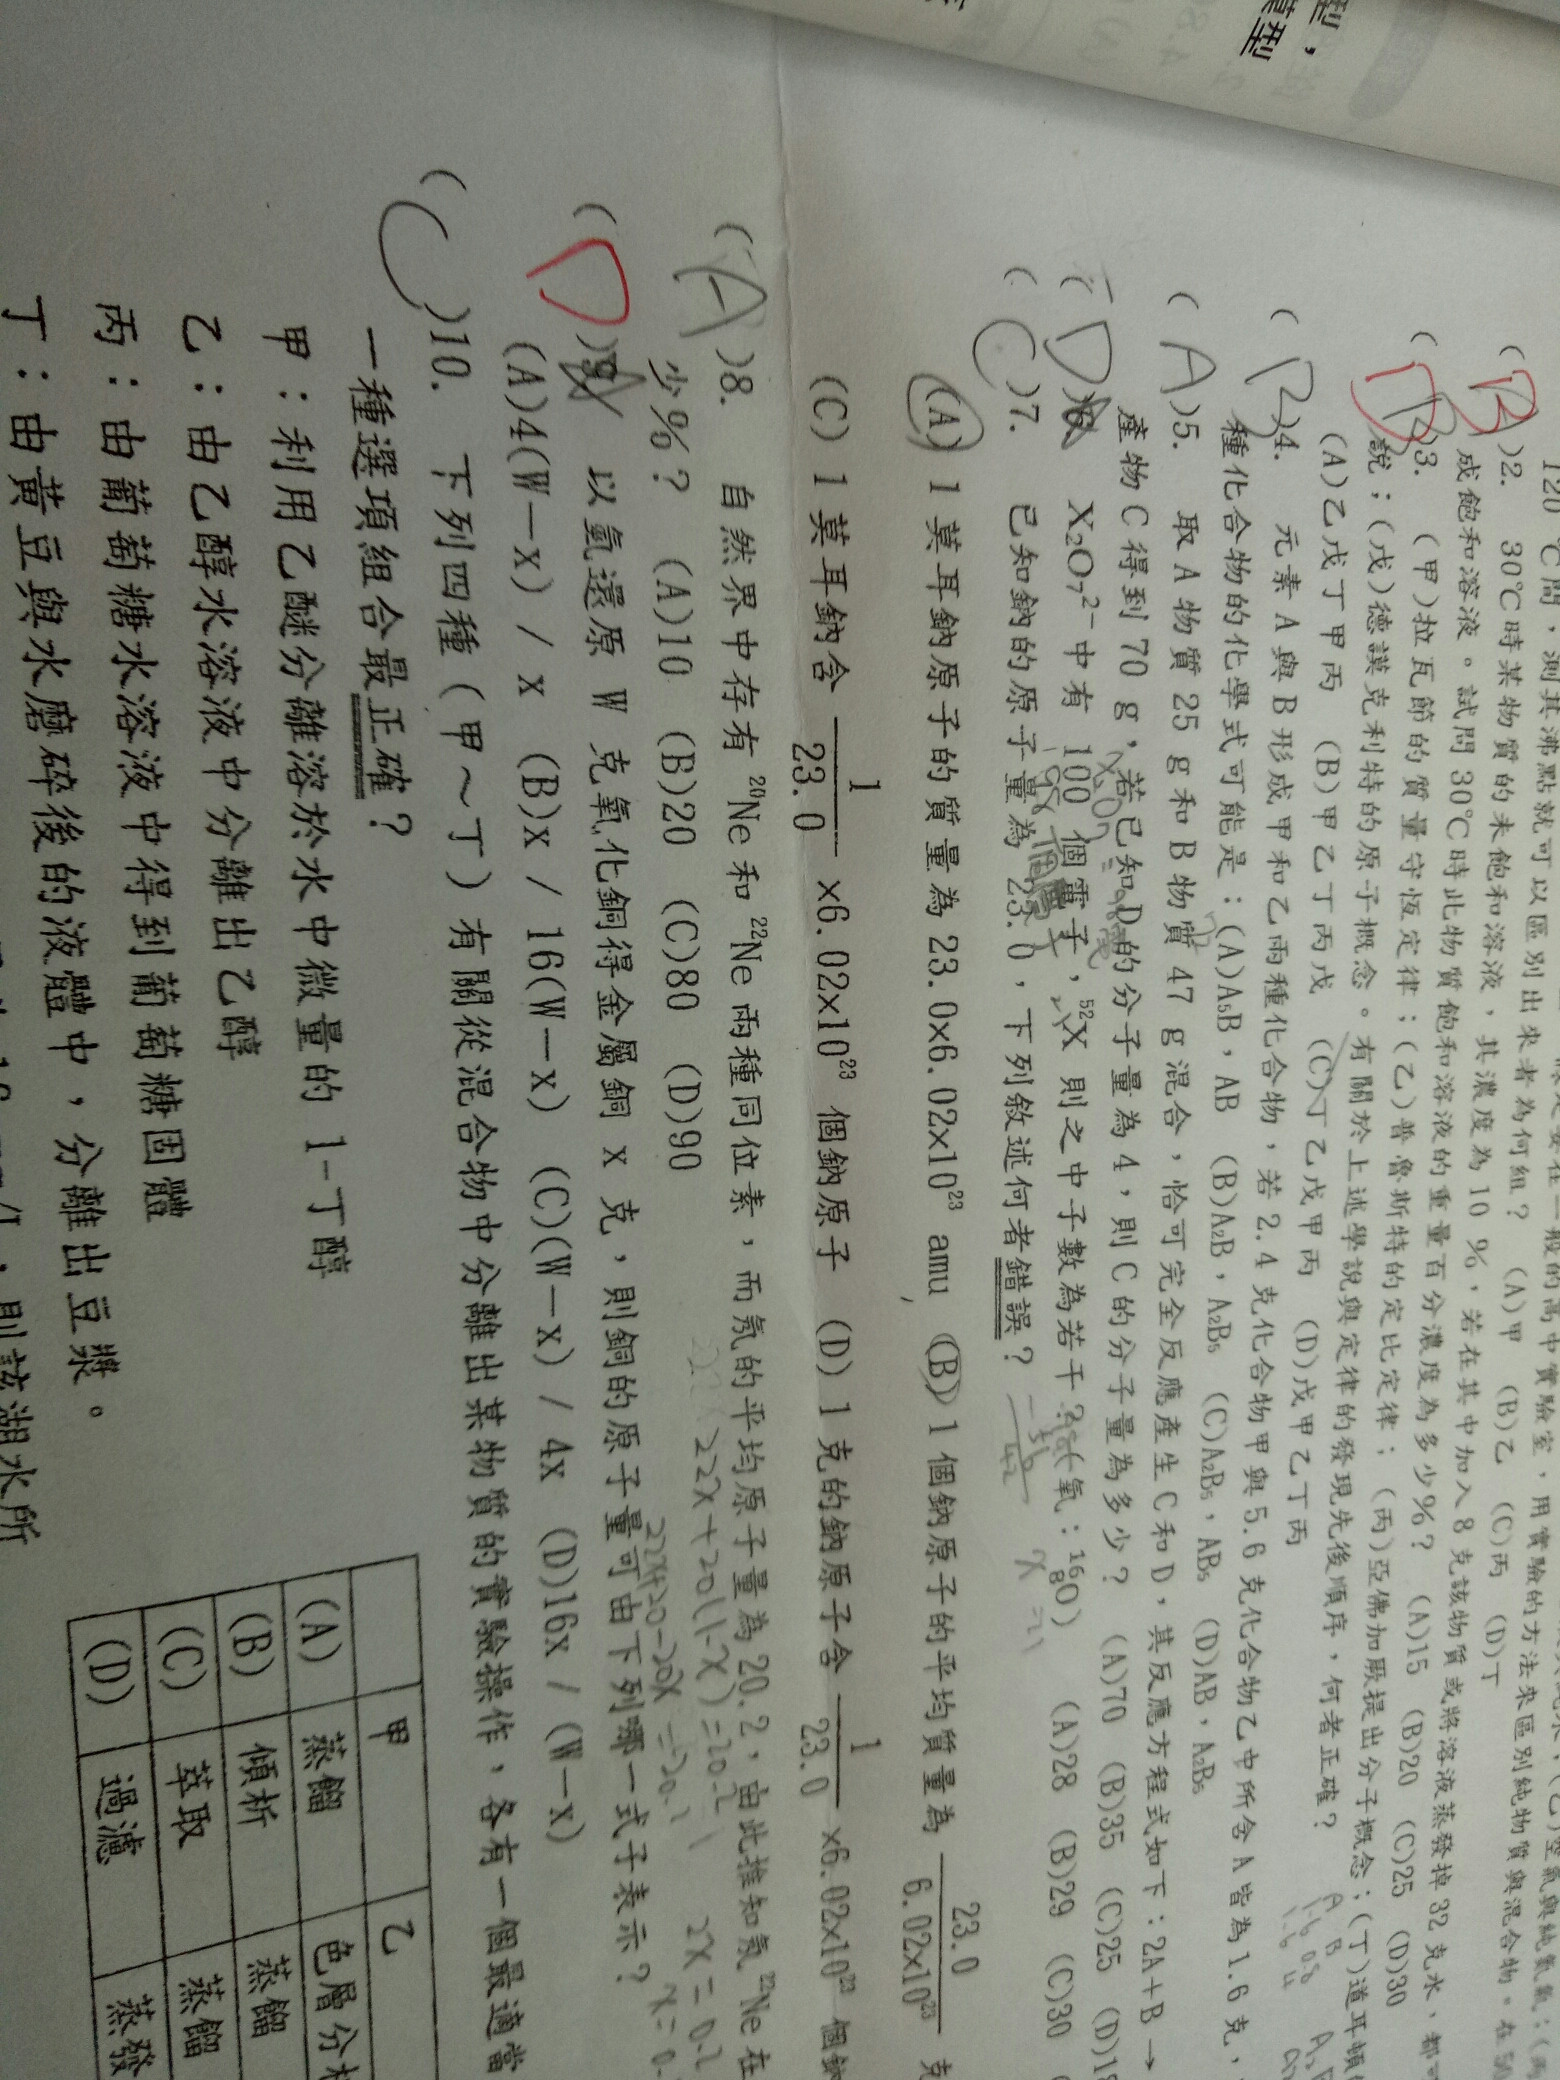 型，
模型
120 ℃間，測其沸點就可以區別出來者為何組？ (A)甲 (B)乙 (C)丙 (D)丁
(B)2. 30℃時某物質的未飽和溶液，其濃度為10 %，若在其中加入8克該物質或將溶液蒸發掉32克水，都可
成飽和溶液。試問30℃時此物質飽和溶液的重量百分濃度為多少%？ (A)15 (B)20 (C)25 (D)30
)3. (甲)拉瓦節的質量守恆定律；(乙)普魯斯特的定比定律；(丙)亞佛加厥提出分子概念；(丁)道耳頓
說；(戊)德謨克利特的原子概念。有關於上述學說與定律的發現先後順序，何者正確？
(A)乙戊丁甲丙 (B)甲乙丁丙戊 (C)丁乙戊甲丙 (D)戊甲乙丁丙
)4. 元素A與B形成甲和乙兩種化合物，若2.4克化合物甲與5.6克化合物乙中所含A皆為1.6克，
種化合物的化學式可能是：(A)A₅B，AB (B)A₂B，A₂B₅ (C)A₂B₅，AB₅ (D)AB，A₂B₅
(A)5. 取A物質25 g和B物質47 g混合，恰可完全反應產生C和D，其反應方程式如下：2A+B →
產物C得到70 g，若已知D的分子量為4，則C的分子量為多少？ (A)70 (B)35 (C)25 (D)1
(D)6. X₂O₇²⁻中有 100 個電子，⁵²X 則之中子數為若干？(氧：¹⁶₈O) (A)28 (B)29 (C)30
(C)7. 已知鈉的原子量為 23.0，下列敘述何者錯誤？
(A) 1 莫耳鈉原子的質量為 23.0×6.02×10²³ amu (B) 1 個鈉原子的平均質量為 23.0/6.02×10²³ 克
(C) 1 莫耳鈉含 1/23.0 ×6.02×10²³ 個鈉原子 (D) 1 克的鈉原子含 1/23.0 ×6.02×10²³ 個鈉
(A)8. 自然界中存有 ²⁰Ne 和 ²²Ne 兩種同位素，而氖的平均原子量為 20.2，由此推知氖 ²²Ne 在
少%？ (A)10 (B)20 (C)80 (D)90
22X+20(1-X)=20.2
2X=0.2
(D)9. 以氫還原 W 克氧化銅得金屬銅 x 克，則銅的原子量可由下列哪一式子表示？
(A)4(W－x) / x (B)x / 16(W－x) (C)(W－x) / 4x (D)16x / (W－x)
(C)10. 下列四種（甲～丁）有關從混合物中分離出某物質的實驗操作，各有一個最適當
一種選項組合最正確？
甲：利用乙醚分離溶於水中微量的 1-丁醇
乙：由乙醇水溶液中分離出乙醇
丙：由葡萄糖水溶液中得到葡萄糖固體
丁：由黃豆與水磨碎後的液體中，分離出豆漿。
甲 乙
(A) 蒸餾 色層分析
(B) 傾析 蒸餾
(C) 萃取 蒸餾
(D) 過濾 蒸發
則該湖水所